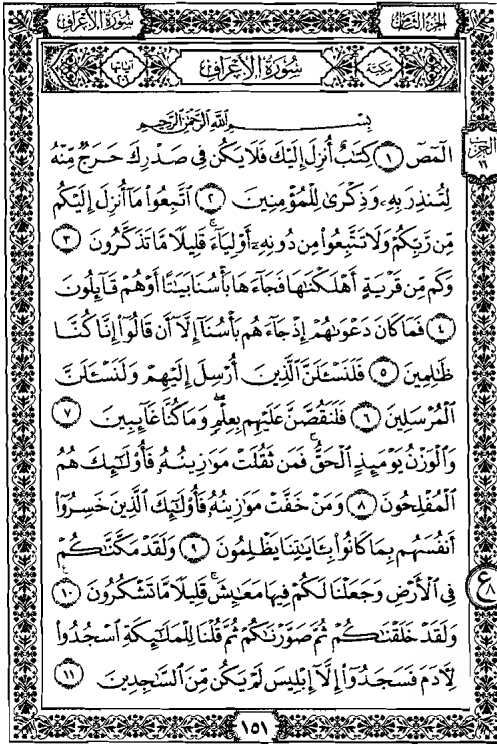 سُورَةُ الأَعْرَافِ
الجُزْءُ الثَّامِنُ
مَكِّيَّة
سُورَةُ الأَعْرَافِ
آيَاتُهَا
بِسْمِ اللَّهِ الرَّحْمَٰنِ الرَّحِيمِ
الحِزْب
١٦
الٓمٓصٓ ١ كِتَٰبٌ أُنزِلَ إِلَيْكَ فَلَا يَكُن فِى صَدْرِكَ حَرَجٌ مِّنْهُ
لِتُنذِرَ بِهِۦ وَذِكْرَىٰ لِلْمُؤْمِنِينَ ٢ ٱتَّبِعُوا۟ مَآ أُنزِلَ إِلَيْكُم
مِّن رَّبِّكُمْ وَلَا تَتَّبِعُوا۟ مِن دُونِهِۦٓ أَوْلِيَآءَ ۗ قَلِيلًا مَّا تَذَكَّرُونَ ٣
وَكَم مِّن قَرْيَةٍ أَهْلَكْنَٰهَا فَجَآءَهَا بَأْسُنَا بَيَٰتًا أَوْ هُمْ قَآئِلُونَ
٤ فَمَا كَانَ دَعْوَىٰهُمْ إِذْ جَآءَهُم بَأْسُنَآ إِلَّآ أَن قَالُوٓا۟ إِنَّا كُنَّا
ظَٰلِمِينَ ٥ فَلَنَسْـَٔلَنَّ ٱلَّذِينَ أُرْسِلَ إِلَيْهِمْ وَلَنَسْـَٔلَنَّ
ٱلْمُرْسَلِينَ ٦ فَلَنَقُصَّنَّ عَلَيْهِم بِعِلْمٍ ۖ وَمَا كُنَّا غَآئِبِينَ ٧
وَٱلْوَزْنُ يَوْمَئِذٍ ٱلْحَقُّ ۚ فَمَن ثَقُلَتْ مَوَٰزِينُهُۥ فَأُو۟لَٰٓئِكَ هُمُ
ٱلْمُفْلِحُونَ ٨ وَمَنْ خَفَّتْ مَوَٰزِينُهُۥ فَأُو۟لَٰٓئِكَ ٱلَّذِينَ خَسِرُوٓا۟
أَنفُسَهُم بِمَا كَانُوا۟ بِـَٔايَٰتِنَا يَظْلِمُونَ ٩ وَلَقَدْ مَكَّنَّٰكُمْ
فِى ٱلْأَرْضِ وَجَعَلْنَا لَكُمْ فِيهَا مَعَٰيِشَ ۗ قَلِيلًا مَّا تَشْكُرُونَ ١٠
وَلَقَدْ خَلَقْنَٰكُمْ ثُمَّ صَوَّرْنَٰكُمْ ثُمَّ قُلْنَا لِلْمَلَٰٓئِكَةِ ٱسْجُدُوا۟
لِـَٔادَمَ فَسَجَدُوٓا۟ إِلَّآ إِبْلِيسَ لَمْ يَكُن مِّنَ ٱلسَّٰجِدِينَ ١١
ع
٨
١٥١